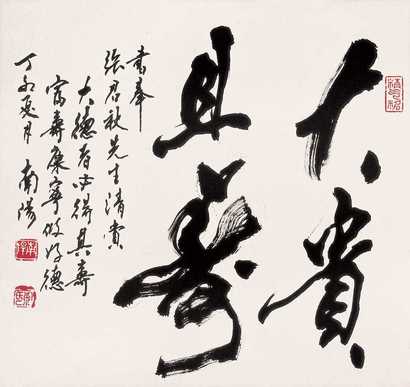 大貴
且壽
書奉
張君秋先生清賞
大德者必得其壽
富壽康寧攸好德
丁卯夏月 南陽